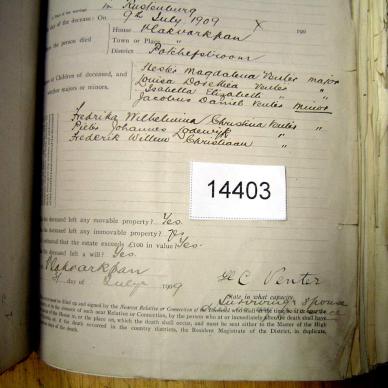 In Rustenburg
of the decease: On 9th July, 1909 190
House Vlakvarkpan
the person died Town or Place "
District Potchefstroom
of Children of deceased, and Hester Magdalena Venter major
whether majors or minors. Louisa Dorothea Venter "
Isabella Elizabeth " "
Jacobus Daniel Venter minor
Fredrika Wilhelmina Christina Venter "
Pieter Johannes Lodewyk "
Frederik Willem Christiaan "
14403
deceased left any movable property? Yes.
deceased left any immovable property?
estimated that the estate exceeds £100 in value? Yes.
deceased left a will? Yes.
Vlakvarkpan
day of July 1909
C Venter
State in what capacity.
Surviving Spouse
must be filled up and signed by the Nearest Relative or Connection of the deceased who shall at the time be at or near the
in the absence of such near Relative or Connection, by the person who at or immediately after the death shall have
of the House in, or the place on, which the death shall occur, and must be sent either to the Master of the High
or, if the death occurred in the country districts, the Resident Magistrate of the District, in duplicate,
days of the death.